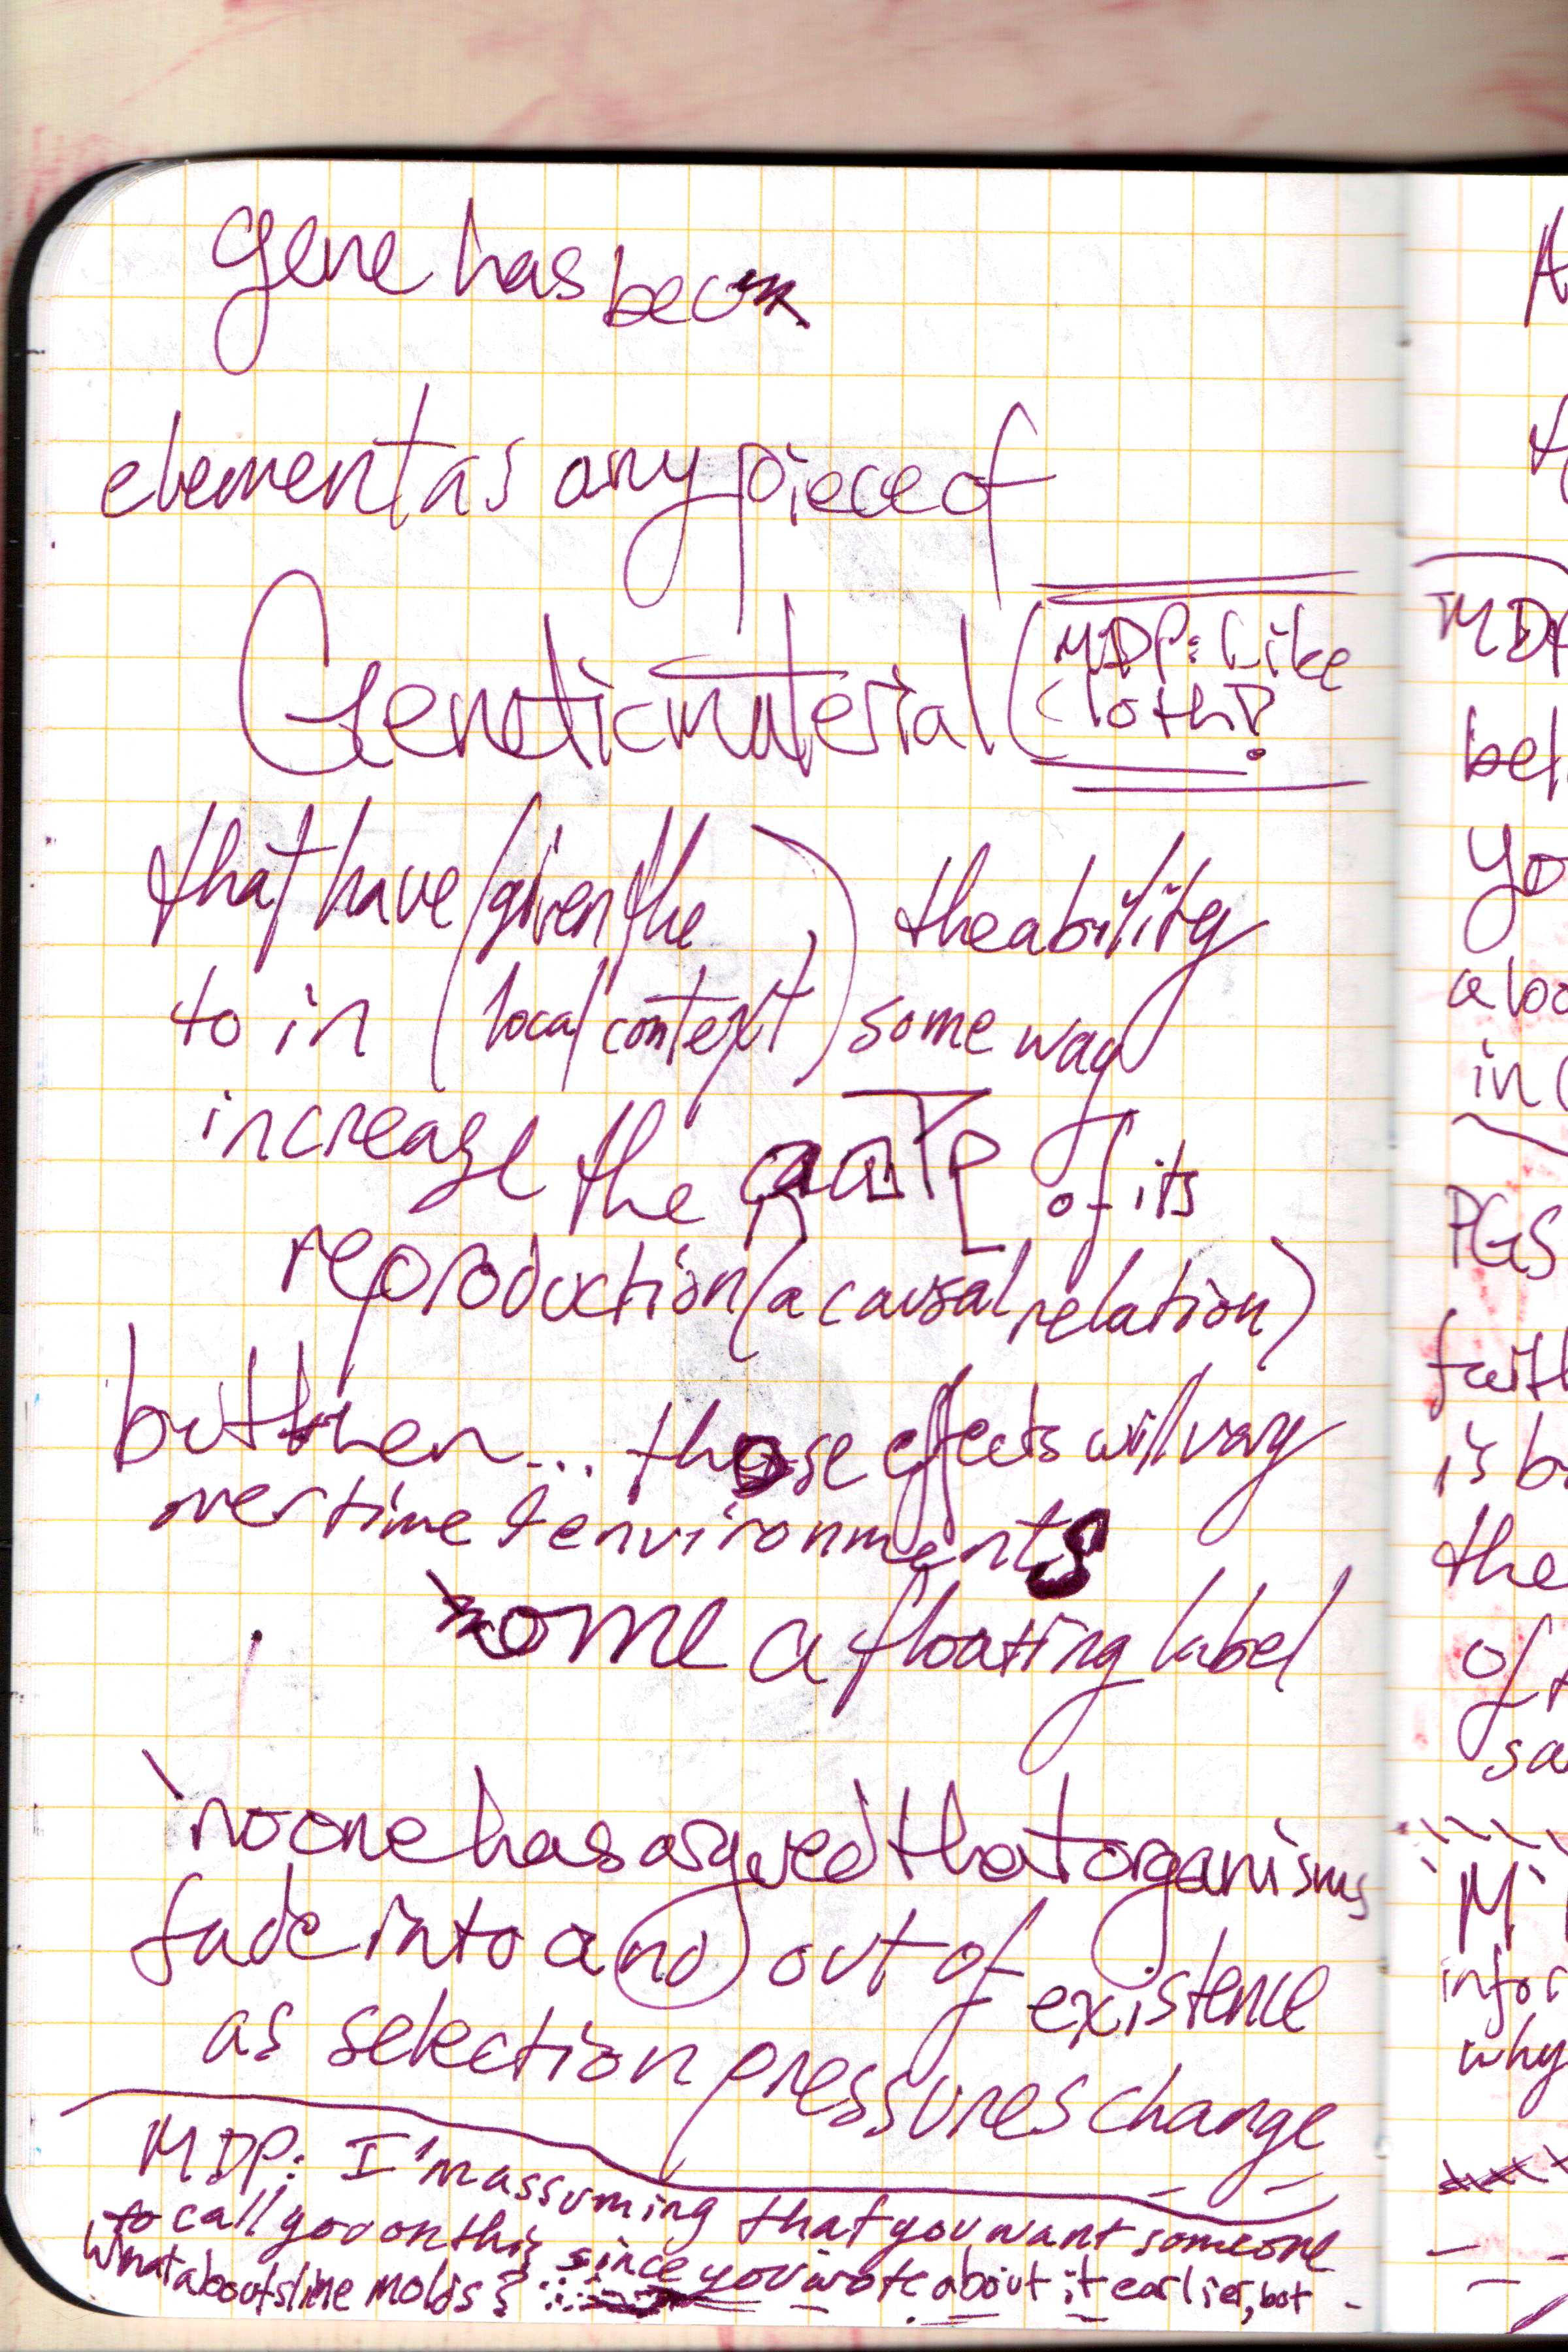 gene has been
element as any piece of
Genetic material (MDP: Like
cloth?
that have (given the ) the ability
to in (local context) some way
increase the rate of its
reproduction (a causal relation)
but then... those effects will vary
over time & environments
some a floating label
no one has argued that organisms
fade into and out of existence
as selection pressures change
MDP: I'm assuming that you want someone
to call you on this since you wrote about it earlier, but
what about slime molds
A
MDP
bel
yo
a loo
in (
PGS
faith
is b
the
of t
sa
M
infor
why